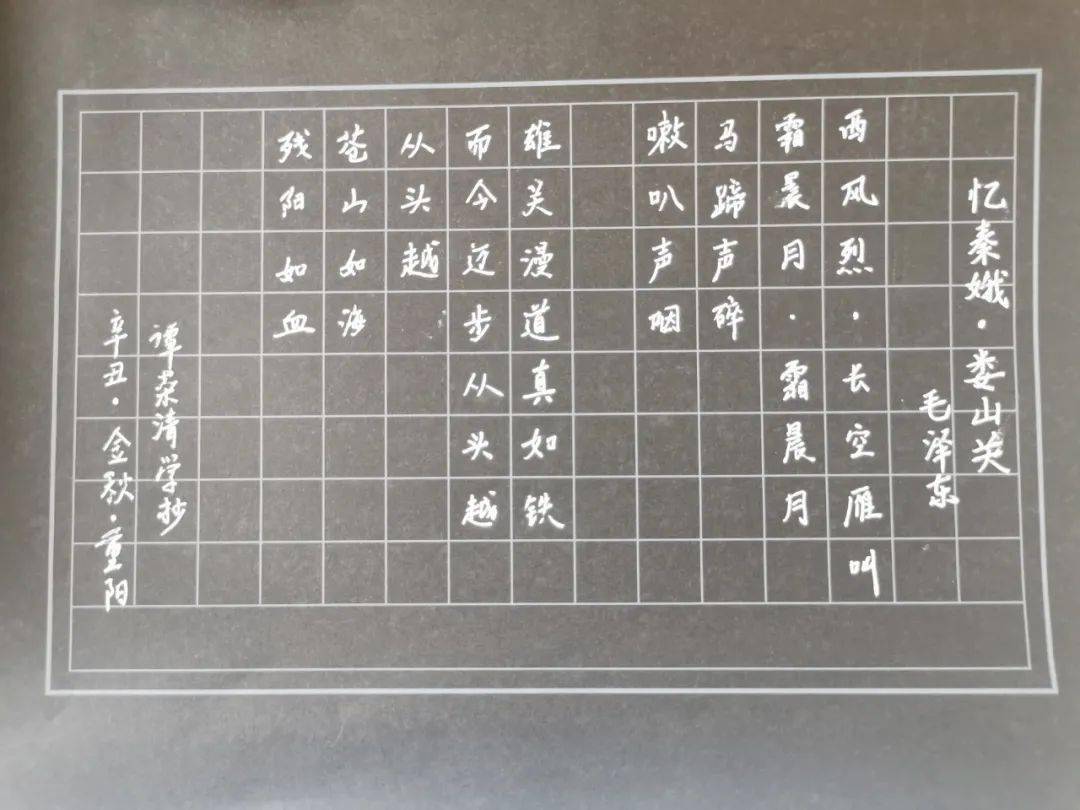 忆秦娥·娄山关
毛泽东
西风烈·长空雁叫
霜晨月·霜晨月
马蹄声碎
嗽叭声咽
雄关漫道真如铁
而今迈步从头越
从头越
苍山如海
残阳如血
谭荣清学抄
辛丑·金秋·重阳